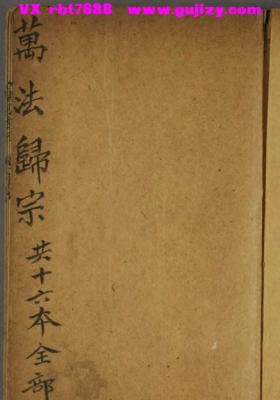 VX rbt7688 www.gujizy.com
萬法歸宗
共十六本全部